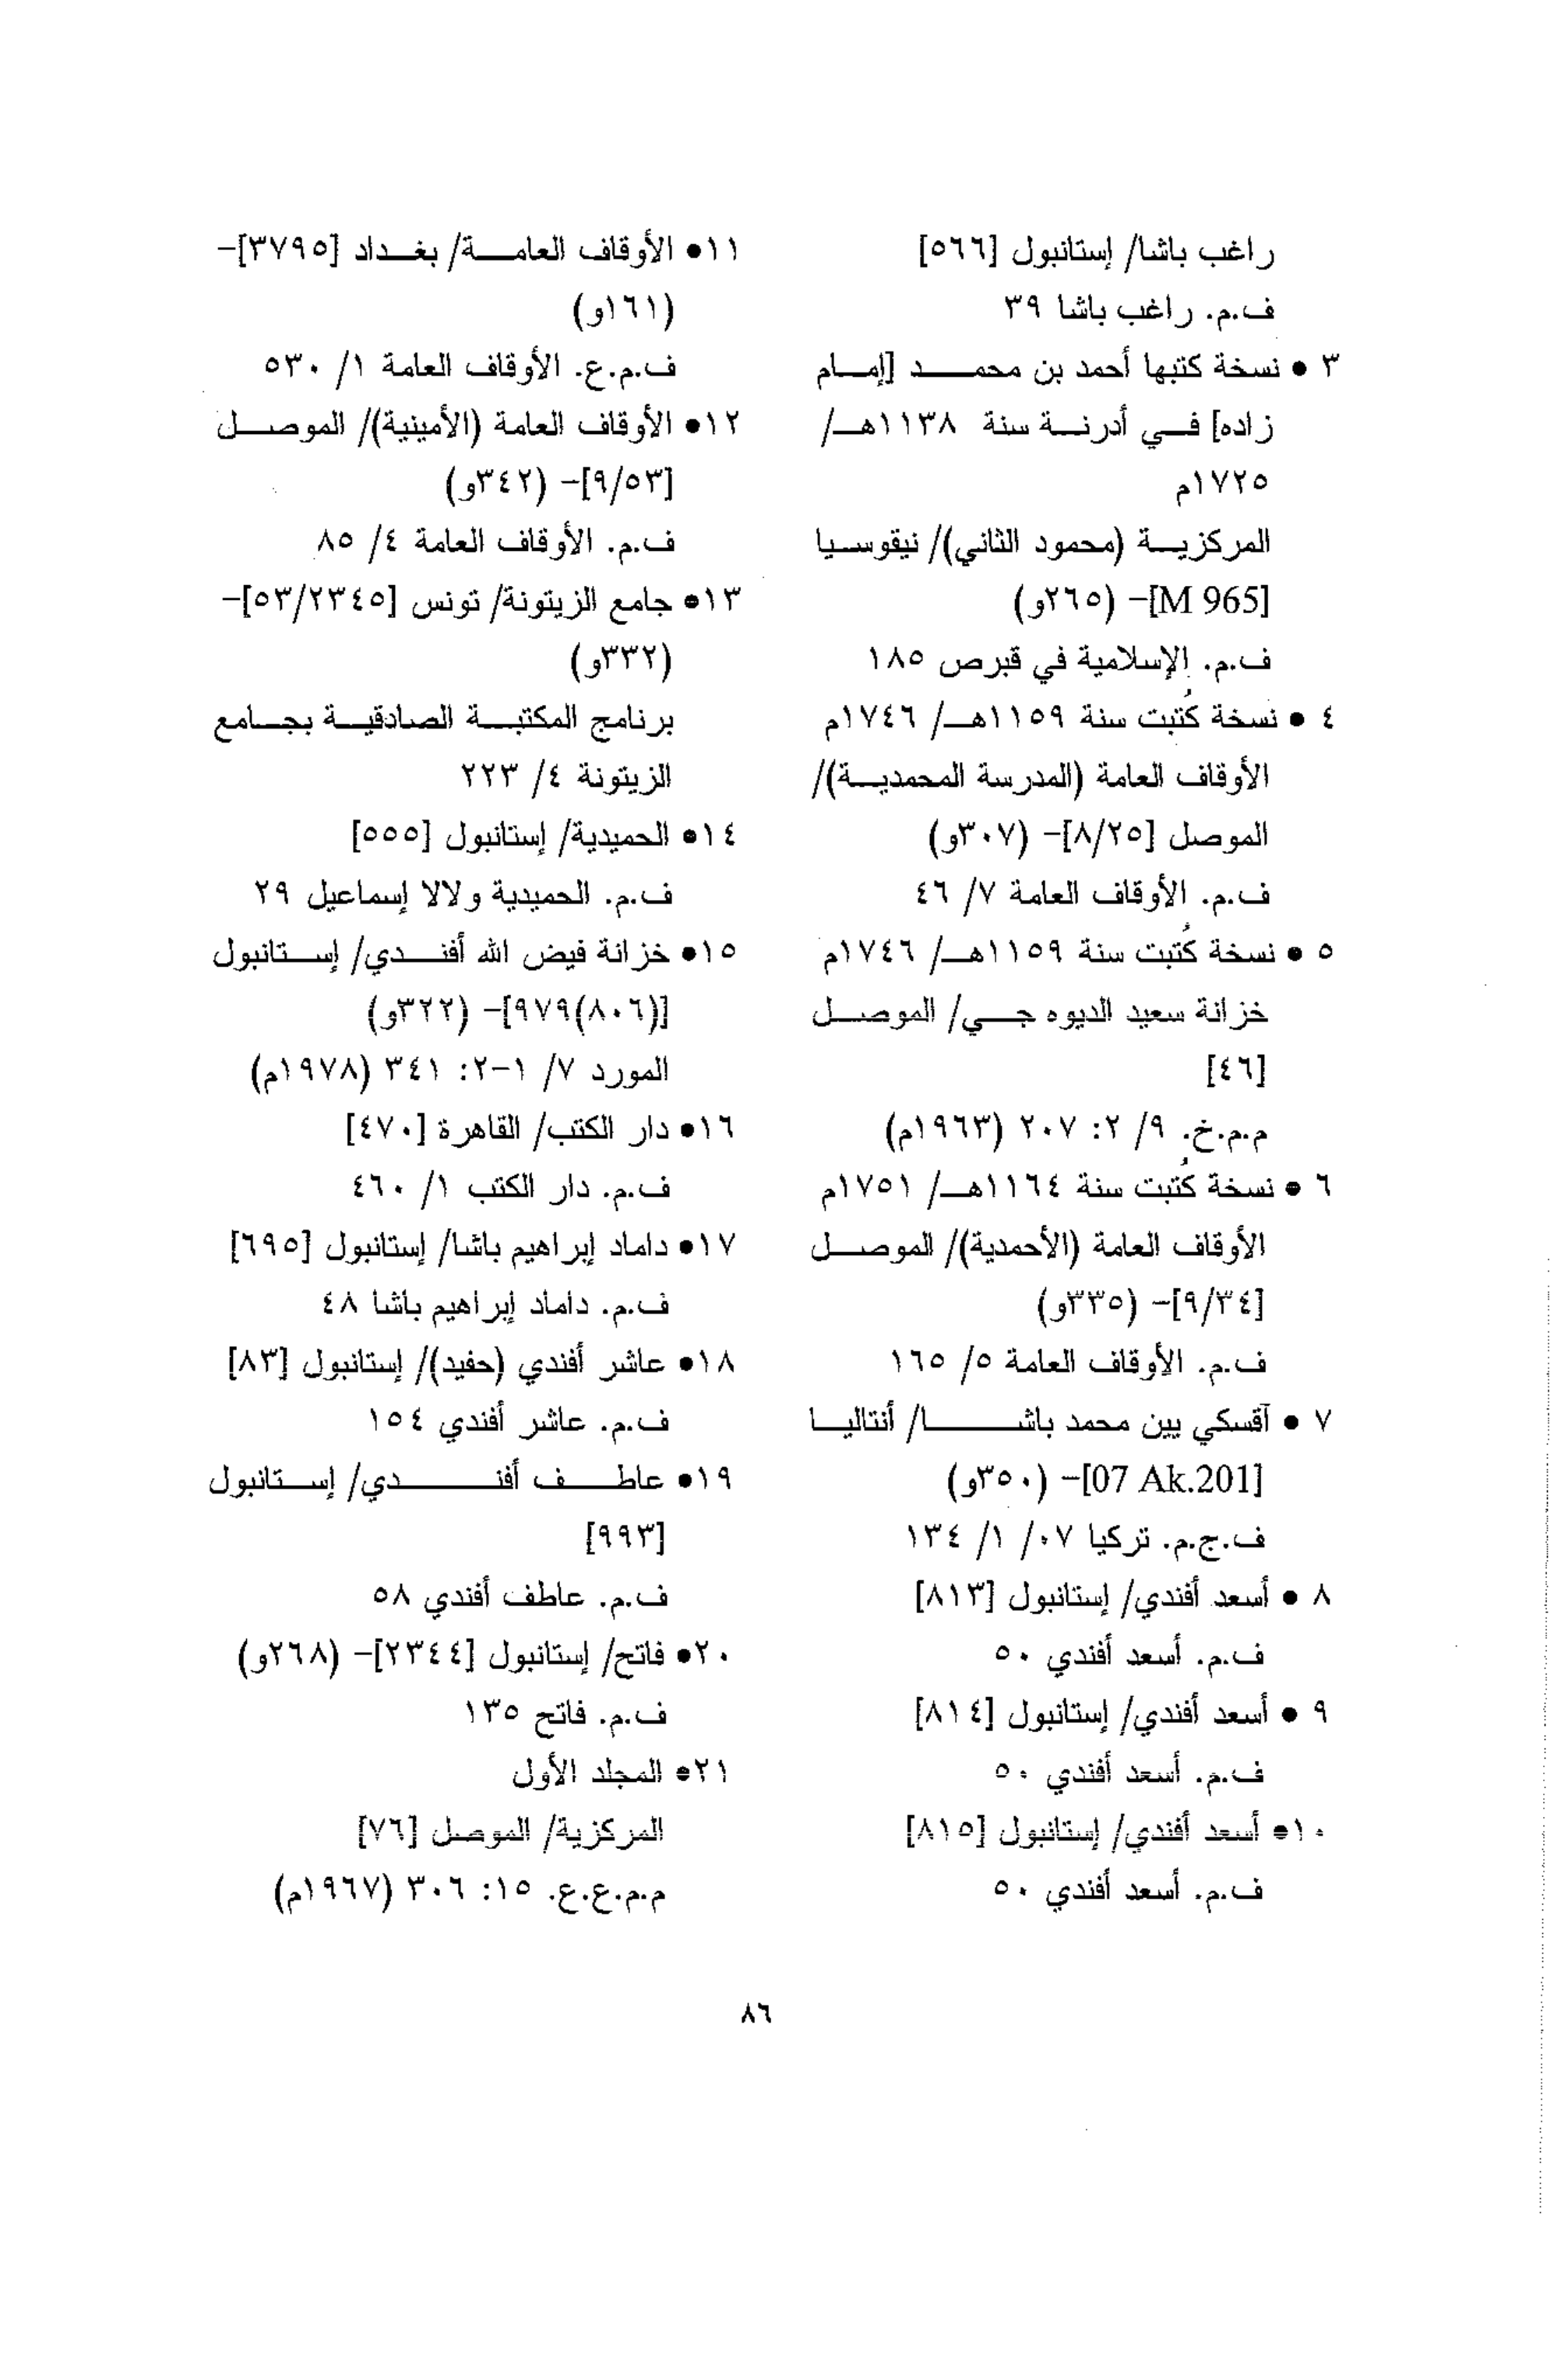 راغب باشا/ إستانبول [٥٦٦]
ف.م. راغب باشا ٣٩
٣ • نسخة كتبها أحمد بن محمد [إمام
زاده] في أدرنة سنة ١١٣٨هـ/
١٧٢٥م
المركزية (محمود الثاني)/ نيقوسيا
[M 965]- (٢٦٥و)
ف.م. الإسلامية في قبرص ١٨٥
٤ • نسخة كُتبت سنة ١١٥٩هـ/ ١٧٤٦م
الأوقاف العامة (المدرسة المحمدية)/
الموصل [٨/٢٥]- (٣٠٧و)
ف.م. الأوقاف العامة ٧/ ٤٦
٥ • نسخة كُتبت سنة ١١٥٩هـ/ ١٧٤٦م
خزانة سعيد الديوه جي/ الموصل
[٤٦]
م.م.خ. ٩/ ٢: ٢٠٧ (١٩٦٣م)
٦ • نسخة كُتبت سنة ١١٦٤هـ/ ١٧٥١م
الأوقاف العامة (الأحمدية)/ الموصل
[٩/٣٤]- (٣٣٥و)
ف.م. الأوقاف العامة ٥/ ١٦٥
٧ • آقسكي يين محمد باشا/ أنتاليا
[07 Ak.201]- (٣٥٠و)
ف.ج.م. تركيا ٠٧/ ١/ ١٣٤
٨ • أسعد أفندي/ إستانبول [٨١٣]
ف.م. أسعد أفندي ٥٠
٩ • أسعد أفندي/ إستانبول [٨١٤]
ف.م. أسعد أفندي ٥٠
١٠• أسعد أفندي/ إستانبول [٨١٥]
ف.م. أسعد أفندي ٥٠
١١• الأوقاف العامة/ بغداد [٣٧٩٥]-
(١٦١و)
ف.م.ع. الأوقاف العامة ١/ ٥٣٠
١٢• الأوقاف العامة (الأمينية)/ الموصل
[٩/٥٣]- (٣٤٢و)
ف.م. الأوقاف العامة ٤/ ٨٥
١٣• جامع الزيتونة/ تونس [٥٣/٢٣٤٥]-
(٣٣٢و)
برنامج المكتبة الصادقية بجامع
الزيتونة ٤/ ٢٢٣
١٤• الحميدية/ إستانبول [٥٥٥]
ف.م. الحميدية ولالا إسماعيل ٢٩
١٥• خزانة فيض الله أفندي/ إستانبول
[(٨٠٦)٩٧٩]- (٣٢٢و)
المورد ٧/ ١-٢: ٣٤١ (١٩٧٨م)
١٦• دار الكتب/ القاهرة [٤٧٠]
ف.م. دار الكتب ١/ ٤٦٠
١٧• داماد إبراهيم باشا/ إستانبول [٦٩٥]
ف.م. داماد إبراهيم باشا ٤٨
١٨• عاشر أفندي (حفيد)/ إستانبول [٨٣]
ف.م. عاشر أفندي ١٥٤
١٩• عاطف أفندي/ إستانبول
[٩٩٣]
ف.م. عاطف أفندي ٥٨
٢٠• فاتح/ إستانبول [٢٣٤٤]- (٢٦٨و)
ف.م. فاتح ١٣٥
٢١• المجلد الأول
المركزية/ الموصل [٧٦]
م.م.ع.ع. ١٥: ٣٠٦ (١٩٦٧م)
٨٦